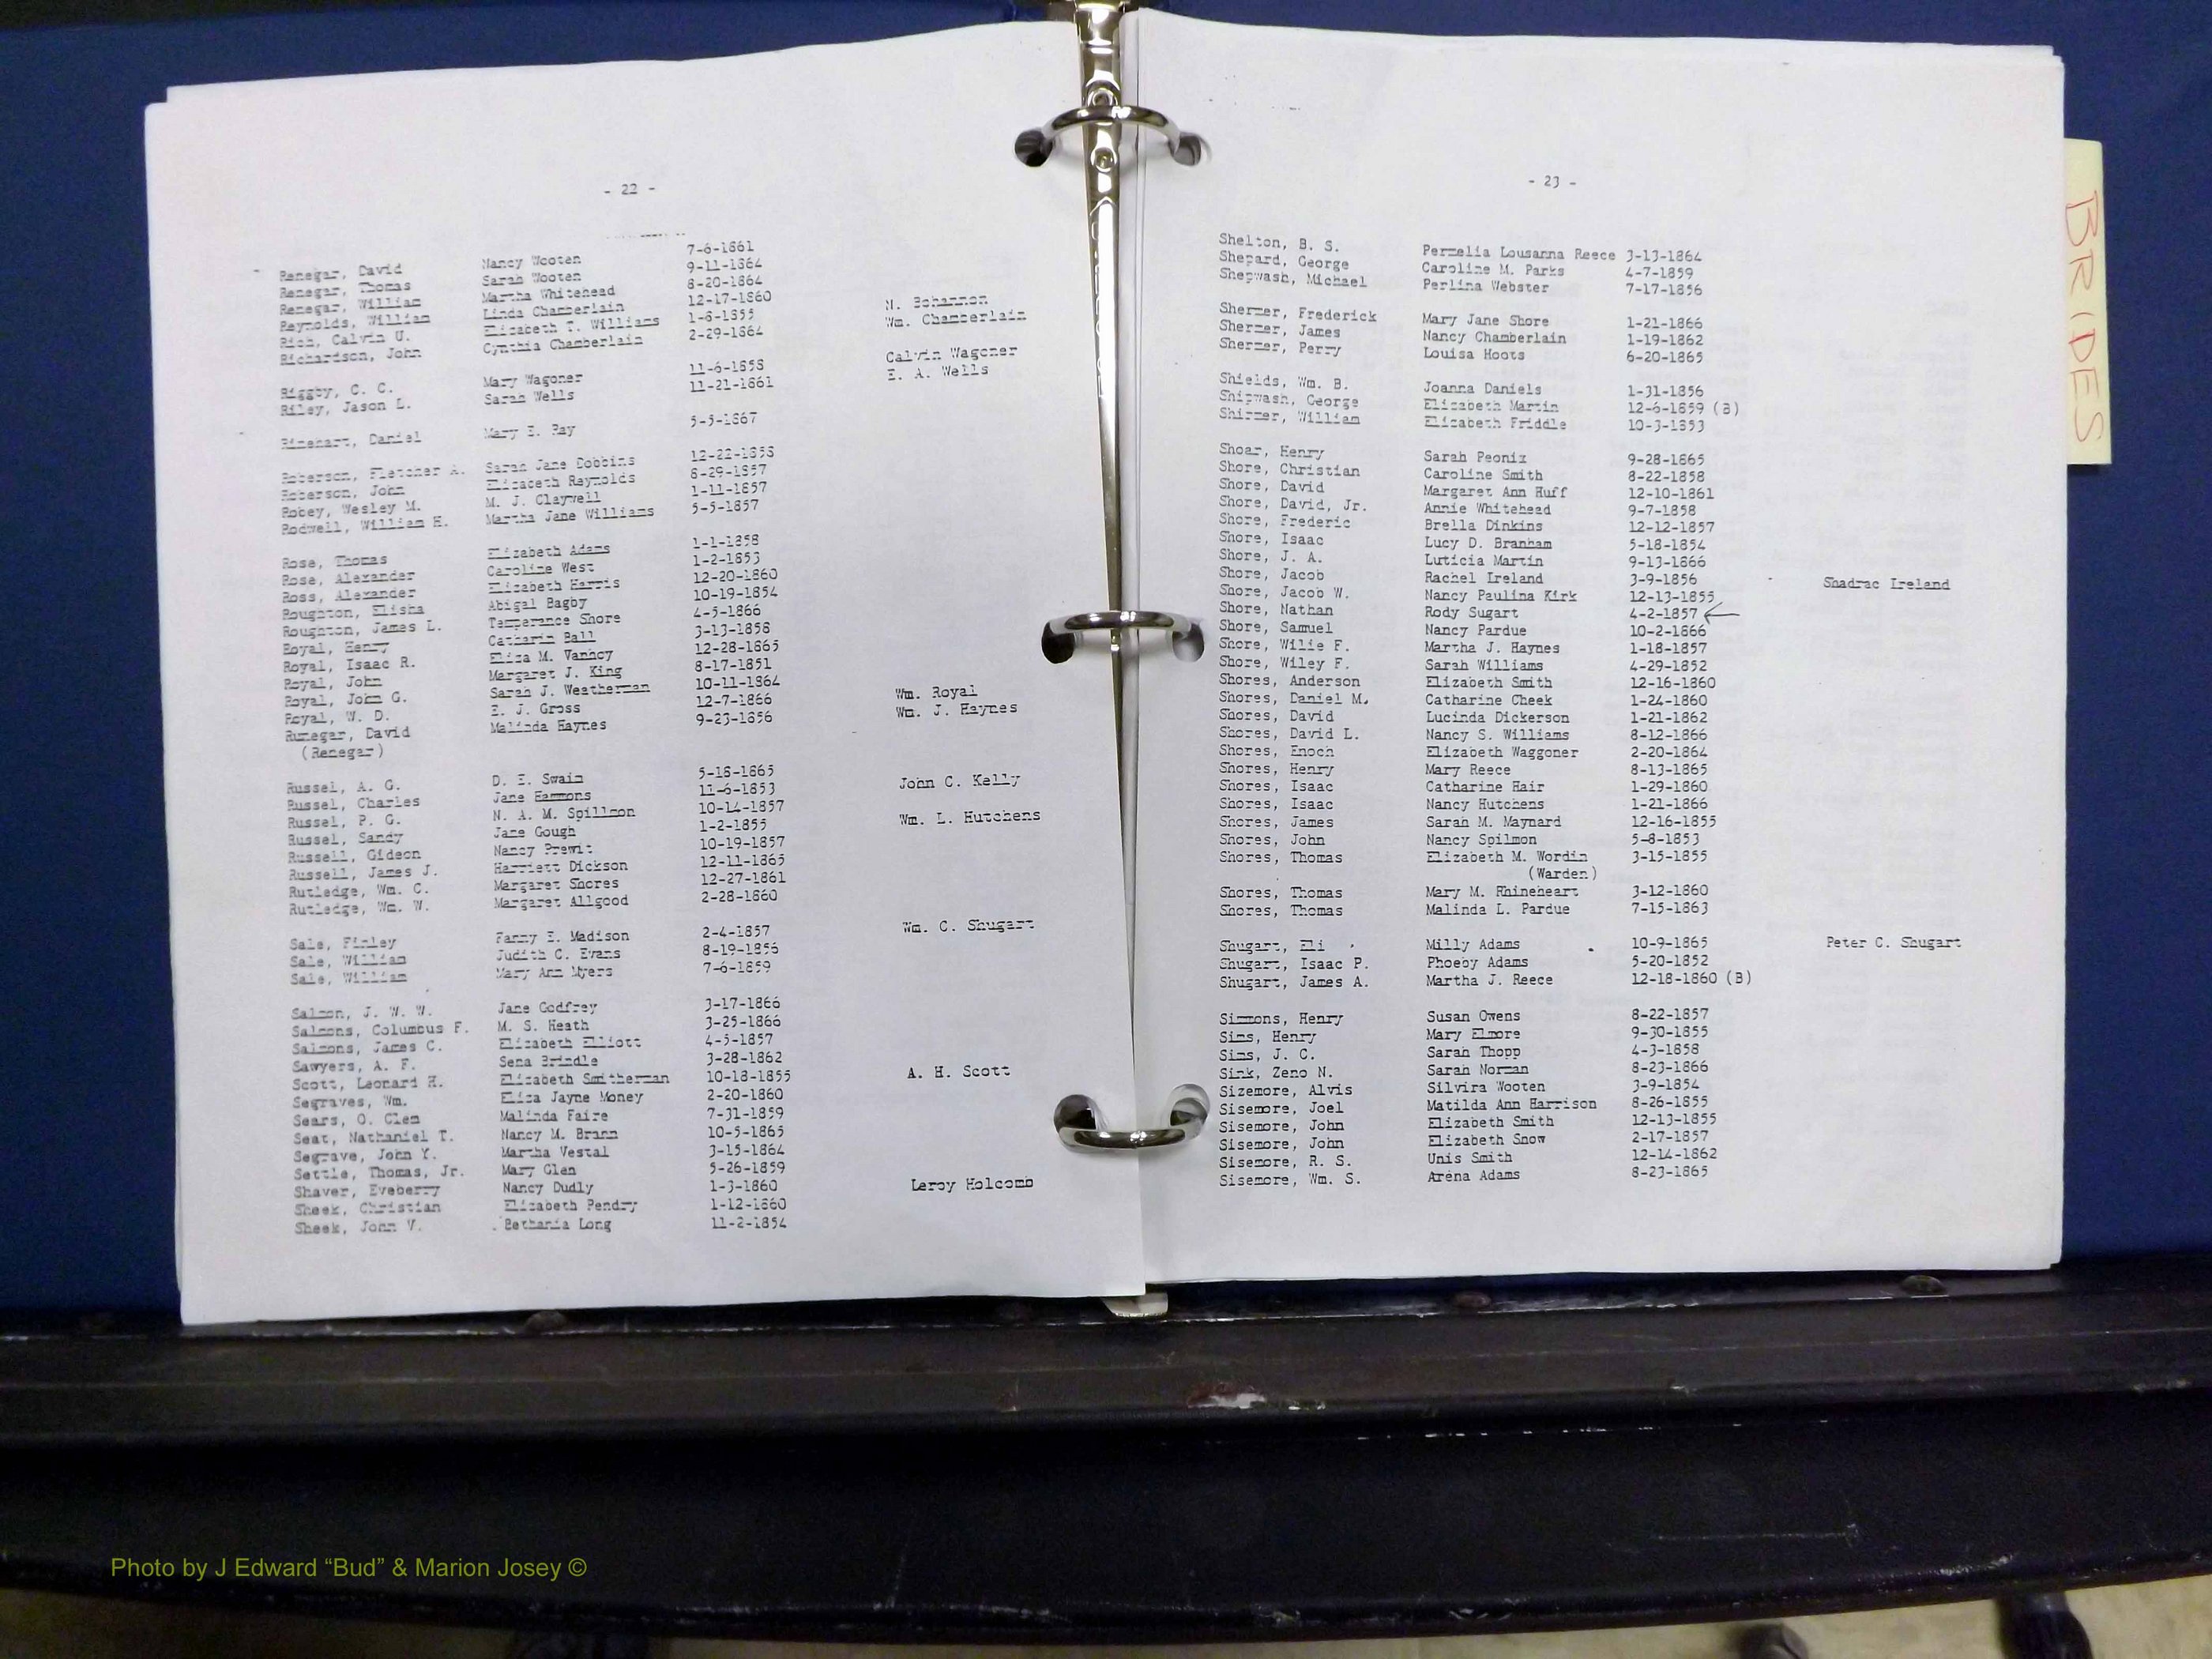 - 22 -
Renegar, David Nancy Wooten 7-6-1861
Renegar, Thomas Sarah Wooten 9-11-1864
Renegar, William Martha Whitehead 8-20-1864
Reynolds, William Linda Chamberlain 12-17-1860 N. Bohannon
Rich, Calvin U. Elizabeth T. Williams 1-8-1855 Wm. Chamberlain
Richardson, John Cynthia Chamberlain 2-29-1864
Riggby, C. C. Mary Wagoner 11-6-1858 Calvin Wagoner
Riley, Jason L. Sarah Wells 11-21-1861 E. A. Wells
Rinehart, Daniel Mary E. Ray 5-5-1867
Roberson, Fletcher A. Sarah Jane Dobbins 12-22-1858
Roberson, John Elizabeth Raynolds 8-29-1857
Robey, Wesley M. M. J. Claywell 1-11-1857
Rodwell, William H. Martha Jane Williams 5-5-1857
Rose, Thomas Elizabeth Adams 1-1-1858
Rose, Alexander Caroline West 1-2-1853
Ross, Alexander Elizabeth Harris 12-20-1860
Roughton, Elisha Abigal Bagby 10-19-1854
Roughton, James L. Temperance Shore 4-5-1866
Royal, Henry Catharin Ball 3-13-1858
Royal, Isaac R. Eliza M. Vanhoy 12-28-1865
Royal, John Margaret J. King 8-17-1851
Royal, John G. Sarah J. Weatherman 10-11-1864
Royal, W. D. E. J. Gross 12-7-1866 Wm. Royal
Runegar, David Malinda Haynes 9-23-1856 Wm. J. Haynes
(Renegar)
Russel, A. G. D. E. Swaim 5-18-1865
Russel, Charles Jane Hammons 11-6-1853 John C. Kelly
Russel, P. G. N. A. M. Spillmon 10-14-1857
Russel, Sandy Jane Gough 1-2-1855 Wm. L. Hutchens
Russell, Gideon Nancy Prewit 10-19-1857
Russell, James J. Harriett Dickson 12-11-1865
Rutledge, Wm. C. Margaret Shores 12-27-1861
Rutledge, Wm. W. Margaret Allgood 2-28-1860
Sale, Finley Fanny E. Madison 2-4-1857 Wm. C. Shugart
Sale, William Judith C. Evans 8-19-1856
Sale, William Mary Ann Myers 7-6-1859
Salmon, J. W. W. Jane Godfrey 3-17-1866
Salmons, Columbus F. M. S. Heath 3-25-1866
Salmons, James C. Elizabeth Elliott 4-5-1857
Sawyers, A. F. Sena Brindle 3-28-1862
Scott, Leonard H. Elizabeth Smitherman 10-18-1855 A. H. Scott
Segraves, Wm. Eliza Jayne Money 2-20-1860
Sears, O. Clem Malinda Faire 7-31-1859
Seat, Nathaniel T. Nancy M. Brann 10-5-1865
Segrave, John Y. Martha Vestal 3-15-1864
Settle, Thomas, Jr. Mary Glen 5-26-1859
Shaver, Eveberry Nancy Dudly 1-3-1860 Leroy Holcomb
Sheek, Christian Elizabeth Pendry 1-12-1860
Sheek, John V. Bethania Long 11-2-1854
- 23 -
Shelton, B. S. Permelia Lousanna Reece 3-13-1864
Shepard, George Caroline M. Parks 4-7-1859
Shepwash, Michael Perlina Webster 7-17-1856
Shermer, Frederick Mary Jane Shore 1-21-1866
Shermer, James Nancy Chamberlain 1-19-1862
Shermer, Perry Louisa Hoots 6-20-1865
Shields, Wm. B. Joanna Daniels 1-31-1856
Shipwash, George Elizabeth Martin 12-6-1859 (B)
Shirmer, William Elizabeth Friddle 10-3-1853
Shoar, Henry Sarah Peonix 9-28-1865
Shore, Christian Caroline Smith 8-22-1858
Shore, David Margaret Ann Huff 12-10-1861
Shore, David, Jr. Annie Whitehead 9-7-1858
Shore, Frederic Brella Dinkins 12-12-1857
Shore, Isaac Lucy D. Branham 5-18-1854
Shore, J. A. Luticia Martin 9-13-1866
Shore, Jacob Rachel Ireland 3-9-1856 Shadrac Ireland
Shore, Jacob W. Nancy Paulina Kirk 12-13-1855
Shore, Nathan Rody Sugart 4-2-1857
Shore, Samuel Nancy Pardue 10-2-1866
Shore, Wilie F. Martha J. Haynes 1-18-1857
Shore, Wiley F. Sarah Williams 4-29-1852
Shores, Anderson Elizabeth Smith 12-16-1860
Shores, Daniel M. Catharine Cheek 1-24-1860
Shores, David Lucinda Dickerson 1-21-1862
Shores, David L. Nancy S. Williams 8-12-1866
Shores, Enoch Elizabeth Waggoner 2-20-1864
Shores, Henry Mary Reece 8-13-1865
Shores, Isaac Catharine Hair 1-29-1860
Shores, Isaac Nancy Hutchens 1-21-1866
Shores, James Sarah M. Maynard 12-16-1855
Shores, John Nancy Spilmon 5-8-1853
Shores, Thomas Elizabeth M. Wordin 3-15-1855
(Warden)
Shores, Thomas Mary M. Rhineheart 3-12-1860
Shores, Thomas Malinda L. Pardue 7-15-1863
Shugart, Eli Milly Adams 10-9-1865 Peter C. Shugart
Shugart, Isaac P. Phoeby Adams 5-20-1852
Shugart, James A. Martha J. Reece 12-18-1860 (B)
Simmons, Henry Susan Owens 8-22-1857
Sims, Henry Mary Elmore 9-30-1855
Sims, J. C. Sarah Thopp 4-3-1858
Sink, Zeno N. Sarah Norman 8-23-1866
Sizemore, Alvis Silvira Wooten 3-9-1854
Sisemore, Joel Matilda Ann Harrison 8-26-1855
Sisemore, John Elizabeth Smith 12-13-1855
Sisemore, John Elizabeth Snow 2-17-1857
Sisemore, R. S. Unis Smith 12-14-1862
Sisemore, Wm. S. Arena Adams 8-23-1865
BRIDES
Photo by J Edward “Bud” & Marion Josey ©